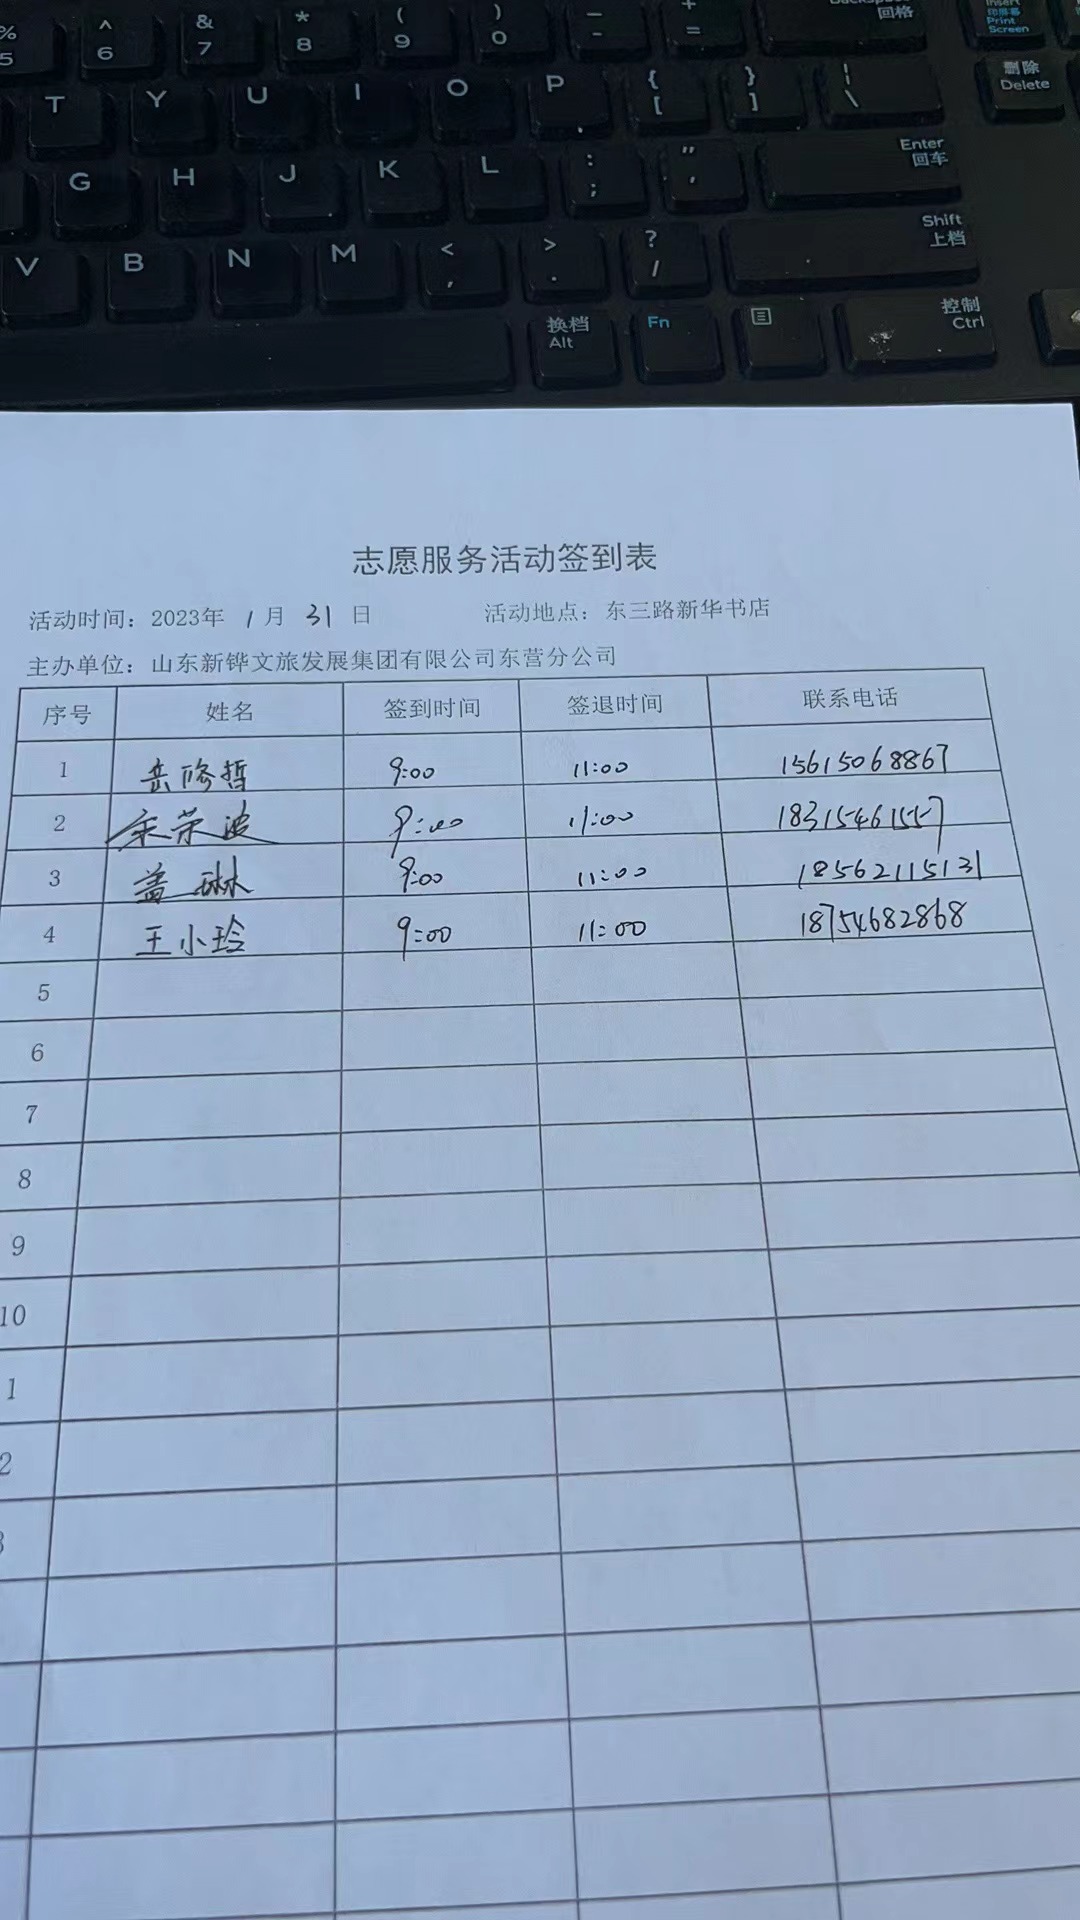 % ^ & * ( ) — + Backspace Insert
5 6 7 8 9 0 - = 回格 印屏幕
Print
Screen
T Y U I O P { } | 删除
[ ] \ Delete
G H J K L : " Enter
; ' 回车
V B N M < > ? Shift
, . / 上档
换档 Fn 控制
Alt Ctrl
志愿服务活动签到表
活动时间：2023年 1 月 31 日 活动地点：东三路新华书店
主办单位：山东新铧文旅发展集团有限公司东营分公司
序号 姓名 签到时间 签退时间 联系电话
1 岳修哲 9:00 11:00 15615068867
2 荣波 9:00 11:00 18315461557
3 盖琳 9:00 11:00 18562115131
4 王小玲 9:00 11:00 18754682868
5
6
7
8
9
10
1
2
3